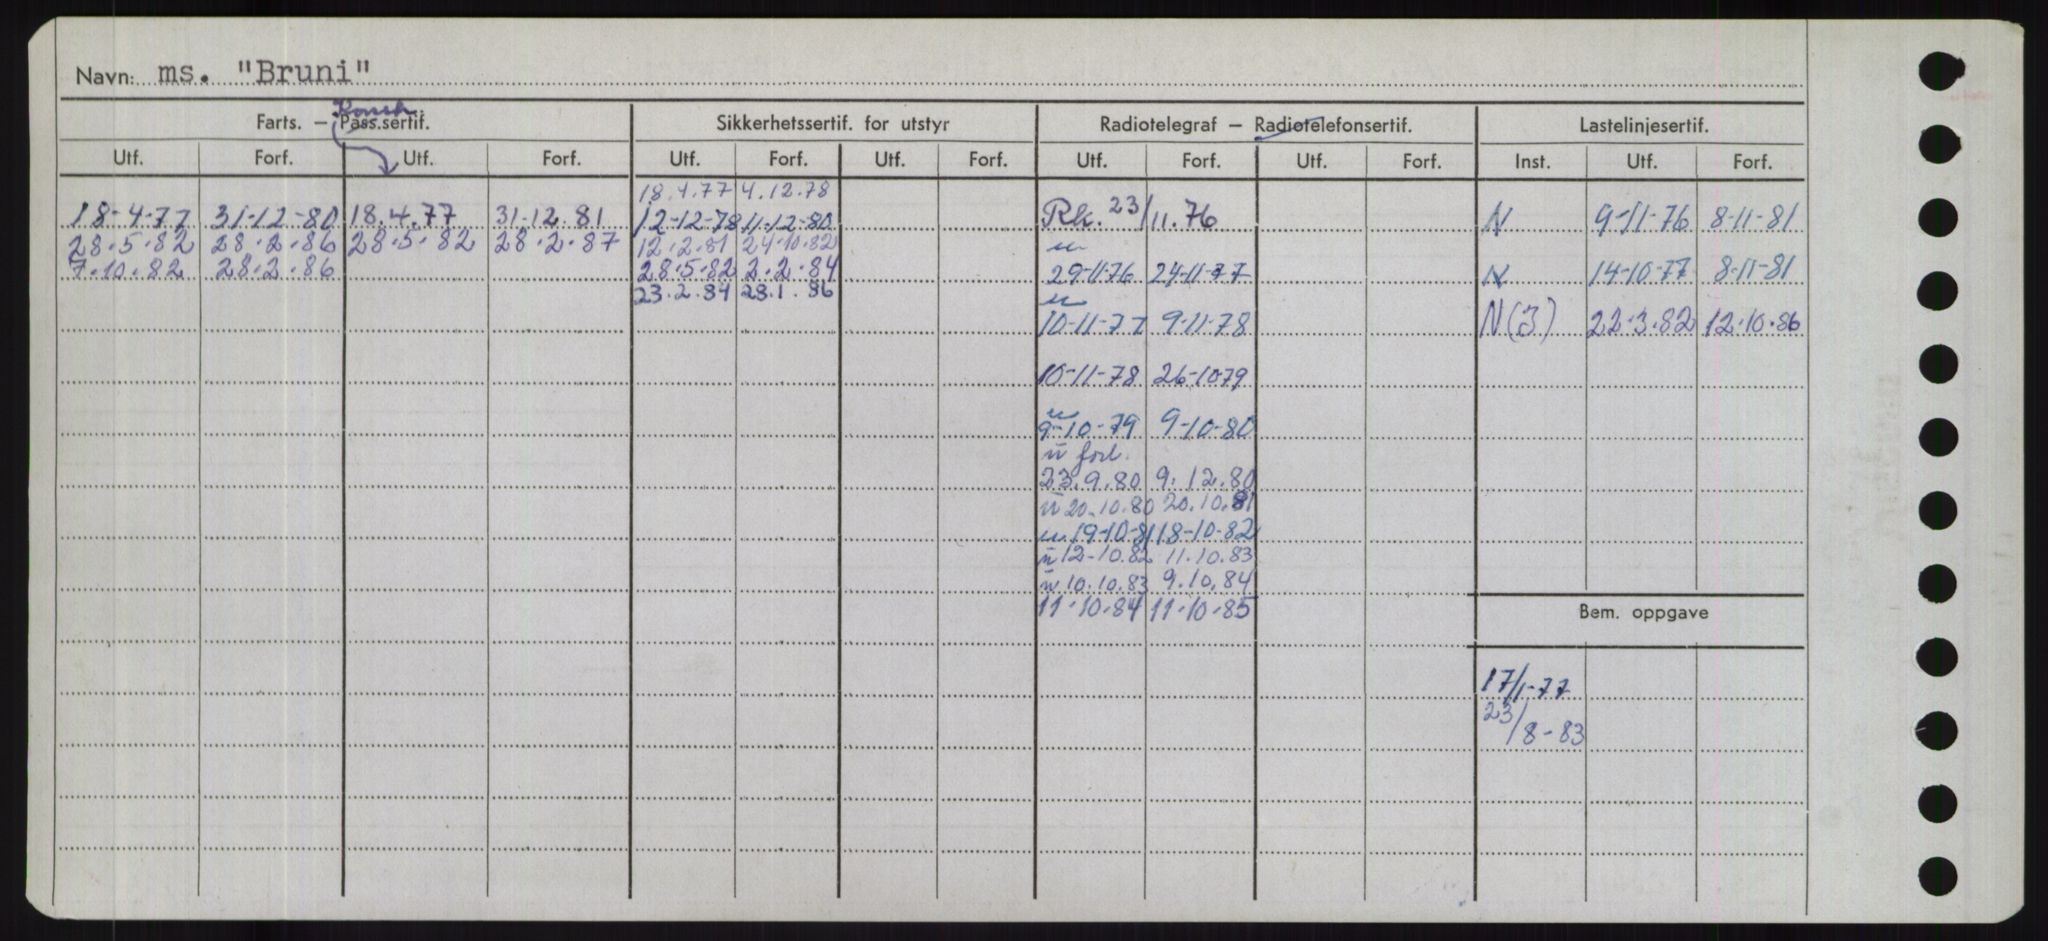 Navn: ms. "Bruni"
Konstr.
Farts. — Pass.sertif. Sikkerhetssertif. for utstyr Radiotelegraf — Radiotelefonsertif. Lastelinjesertif.
Utf. Forf. Utf. Forf. Utf. Forf. Utf. Forf. Utf. Forf. Utf. Forf. Inst. Utf. Forf.
18.4.77 4.12.78
18-4-77 31-12-80 18.4.77 31.12.81 12-12-78 11-12-80 Rk. 23/11.76 N 9-11-76 8-11-81
28.5.82 28.2.86 28.5.82 28.2.87 12.2.81 24.10.82 u
7.10.82 28.2.86 28.5.82 2.2.84 29-11-76 24-11-77 N 14-10-77 8-11-81
23.2.84 28.1.86 u
10-11-77 9-11-78 N(3) 22.3.82 12.10.86
10-11-78 26-10-79
u
9-10-79 9-10-80
u forl.
23.9.80 9.12.80
u 20.10.80 20.10.81
u 19-10-81 18-10-82
u 12-10.82 11.10.83
u 10.10.83 9.10.84
11.10.84 11.10.85
Bem. oppgave
17/1-77
23/8-83